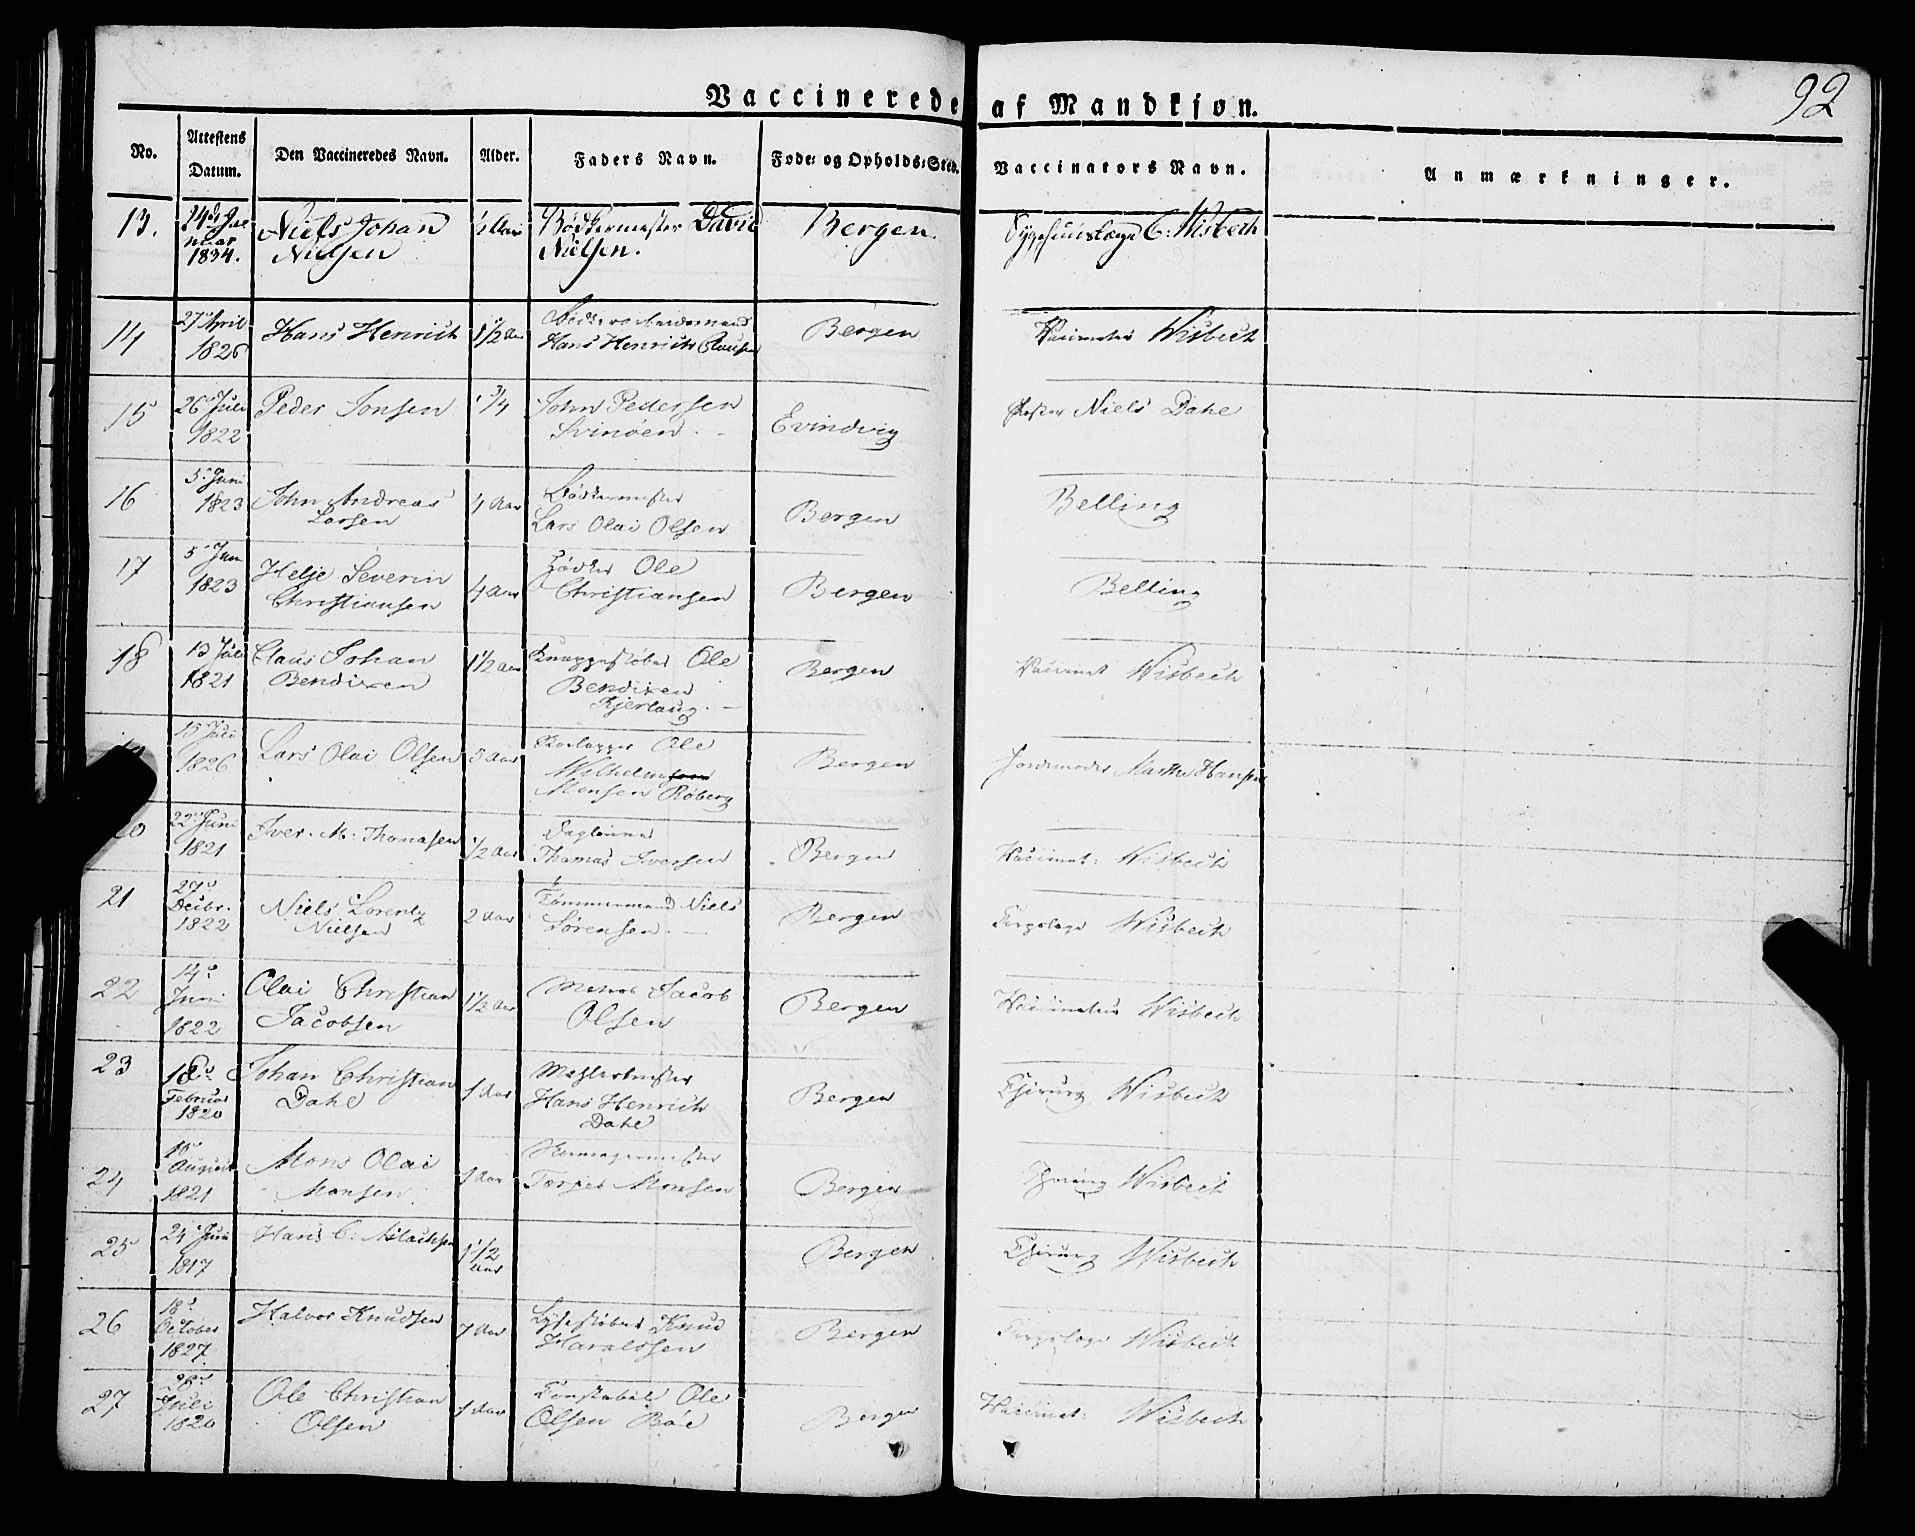 Vaccinerede af Mandkjøn.
92
No.
Attestens Datum.
Den Vaccineredes Navn.
Alder.
Faders Navn.
Føde- og Opholds-Sted.
Vaccinators Navn.
Anmærkninger.
13. 24de Januar 1834. Niels Johan Nielsen Bødkermester David Nielsen. Bergen. C: Wisbech
14 27 April 1826 Hans Henrich 1 1/2 Aar Hans Henrich Clausen Bergen Vaccinator Wisbech
15 26 Juli 1822 Peder Jonsen 3/4 John Pedersen Svinöen Evindvig Niels Dahl
16 5 Juni 1823 John Andreas Larsen 4 Aar Bödkermester Lars Olai Olsen Bergen Belling
17 5 Juni 1823 Helje Severin Christiansen 4 Aar Ole Christiansen Bergen Belling
18 13 Juli 1821 Claus Johan Bendixen 1 1/2 Aar Ole Bendixen Kjerlaug Bergen Vaccinat Wisbech
15 Juli 1826 Lars Olai Olsen 5 Aar Ole Wilhelm Monsen Röberg Bergen Jordemoder Marthe Hansen
20 22 Juni 1821 Iver M: Thomasen 1/2 Aar Thomas Iversen Bergen Vaccinat: Wisbech
21 27 Decbr. 1822 Niels Lorentz Nielsen 2 Aar Tömmermand Niels Sörensen Bergen Wisbech
22 14 Juni 1822 Olai Christian Jacobsen 1 1/2 Aar Jacob Olsen Bergen Vaccinator Wisbech
23 18 Februar 1820 Johan Christian Dahl 1 Aar Hans Henrich Dahl Bergen Chirurg Wisbech
24 August 1821 Mons Olai Monsen 1 Aar Torger Monsen Bergen Chirurg Wisbech
25 24 Juni 1817 Hans C: 1 1/2 Aar Bergen Chirurg Wisbech
26 18 October 1827 Halvor Knudsen 7 Aar Knud Haraldsen Bergen Wisbech
27 28 Juli 1820 Ole Christian Olsen 1 Aar Constabel Ole Olsen Boe Bergen Vaccinat: Wisbech